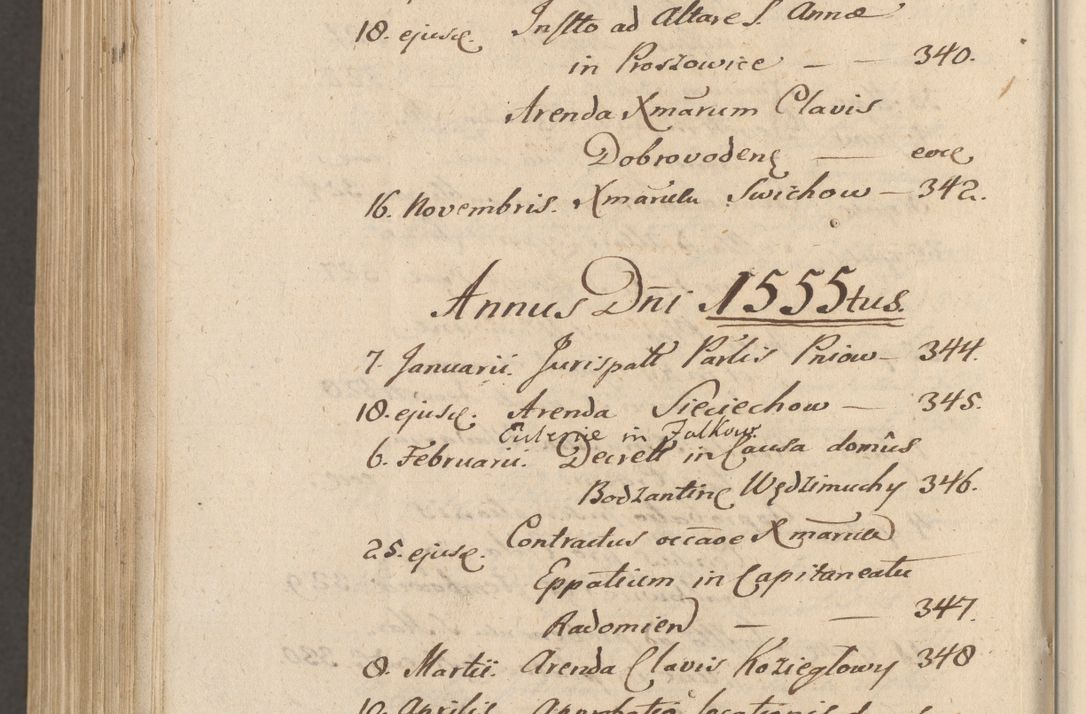 18. ejusd. Instto ad Altare S. Annæ
in Proszowice — — 340.
Arenda Xmarum Clavis
Dobrovodenę — eod.
16. Novembris. Xmarum Swichow — 342.
Annus Dni 1555tus.
7. Januarii. Jurispatt Partis Pniow — 344.
18. ejusd. Arenda Sieciechow — 345.
in Falkow
6. Februarii. Decrett in Causa domûs
Bodzantinę Wędzimuchy 346.
25. ejusd. Contractus occãoe Xmarum
Eppalium in Capitaneatu
Radomien — — 347.
8. Martii. Arenda Clavis Koziegłowy 348
10. Aprilis. Approbatio locationis